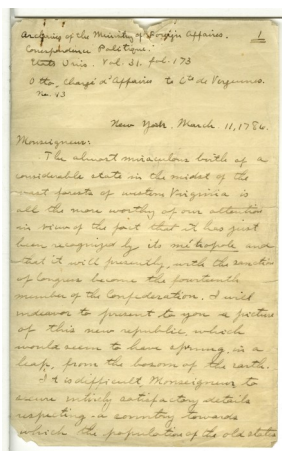 Archives of the Ministry of Foreign Affairs.
1
Correspondence Politique.
Etats Unis. Vol. 31. fol. 173
Otto, Chargé d'Affaires to Cte de Vergennes.
No 43
New York. March 11, 1786.
Monseigneur:
The almost miraculous birth of a
considerable state in the midst of the
vast forests of western Virginia is
all the more worthy of our attention
in view of the fact that it has just
been recognized by its métropole and
that it will presently, with the sanction
of Congress become the fourteenth
member of the Confederation. I will
endeavor to present to you a picture
of this new republic, which
would seem to have sprung, in a
leap, from the bosom of the earth.
It is difficult Monseigneur to
secure entirely satisfactory details
respecting a country towards
which the population of the old states